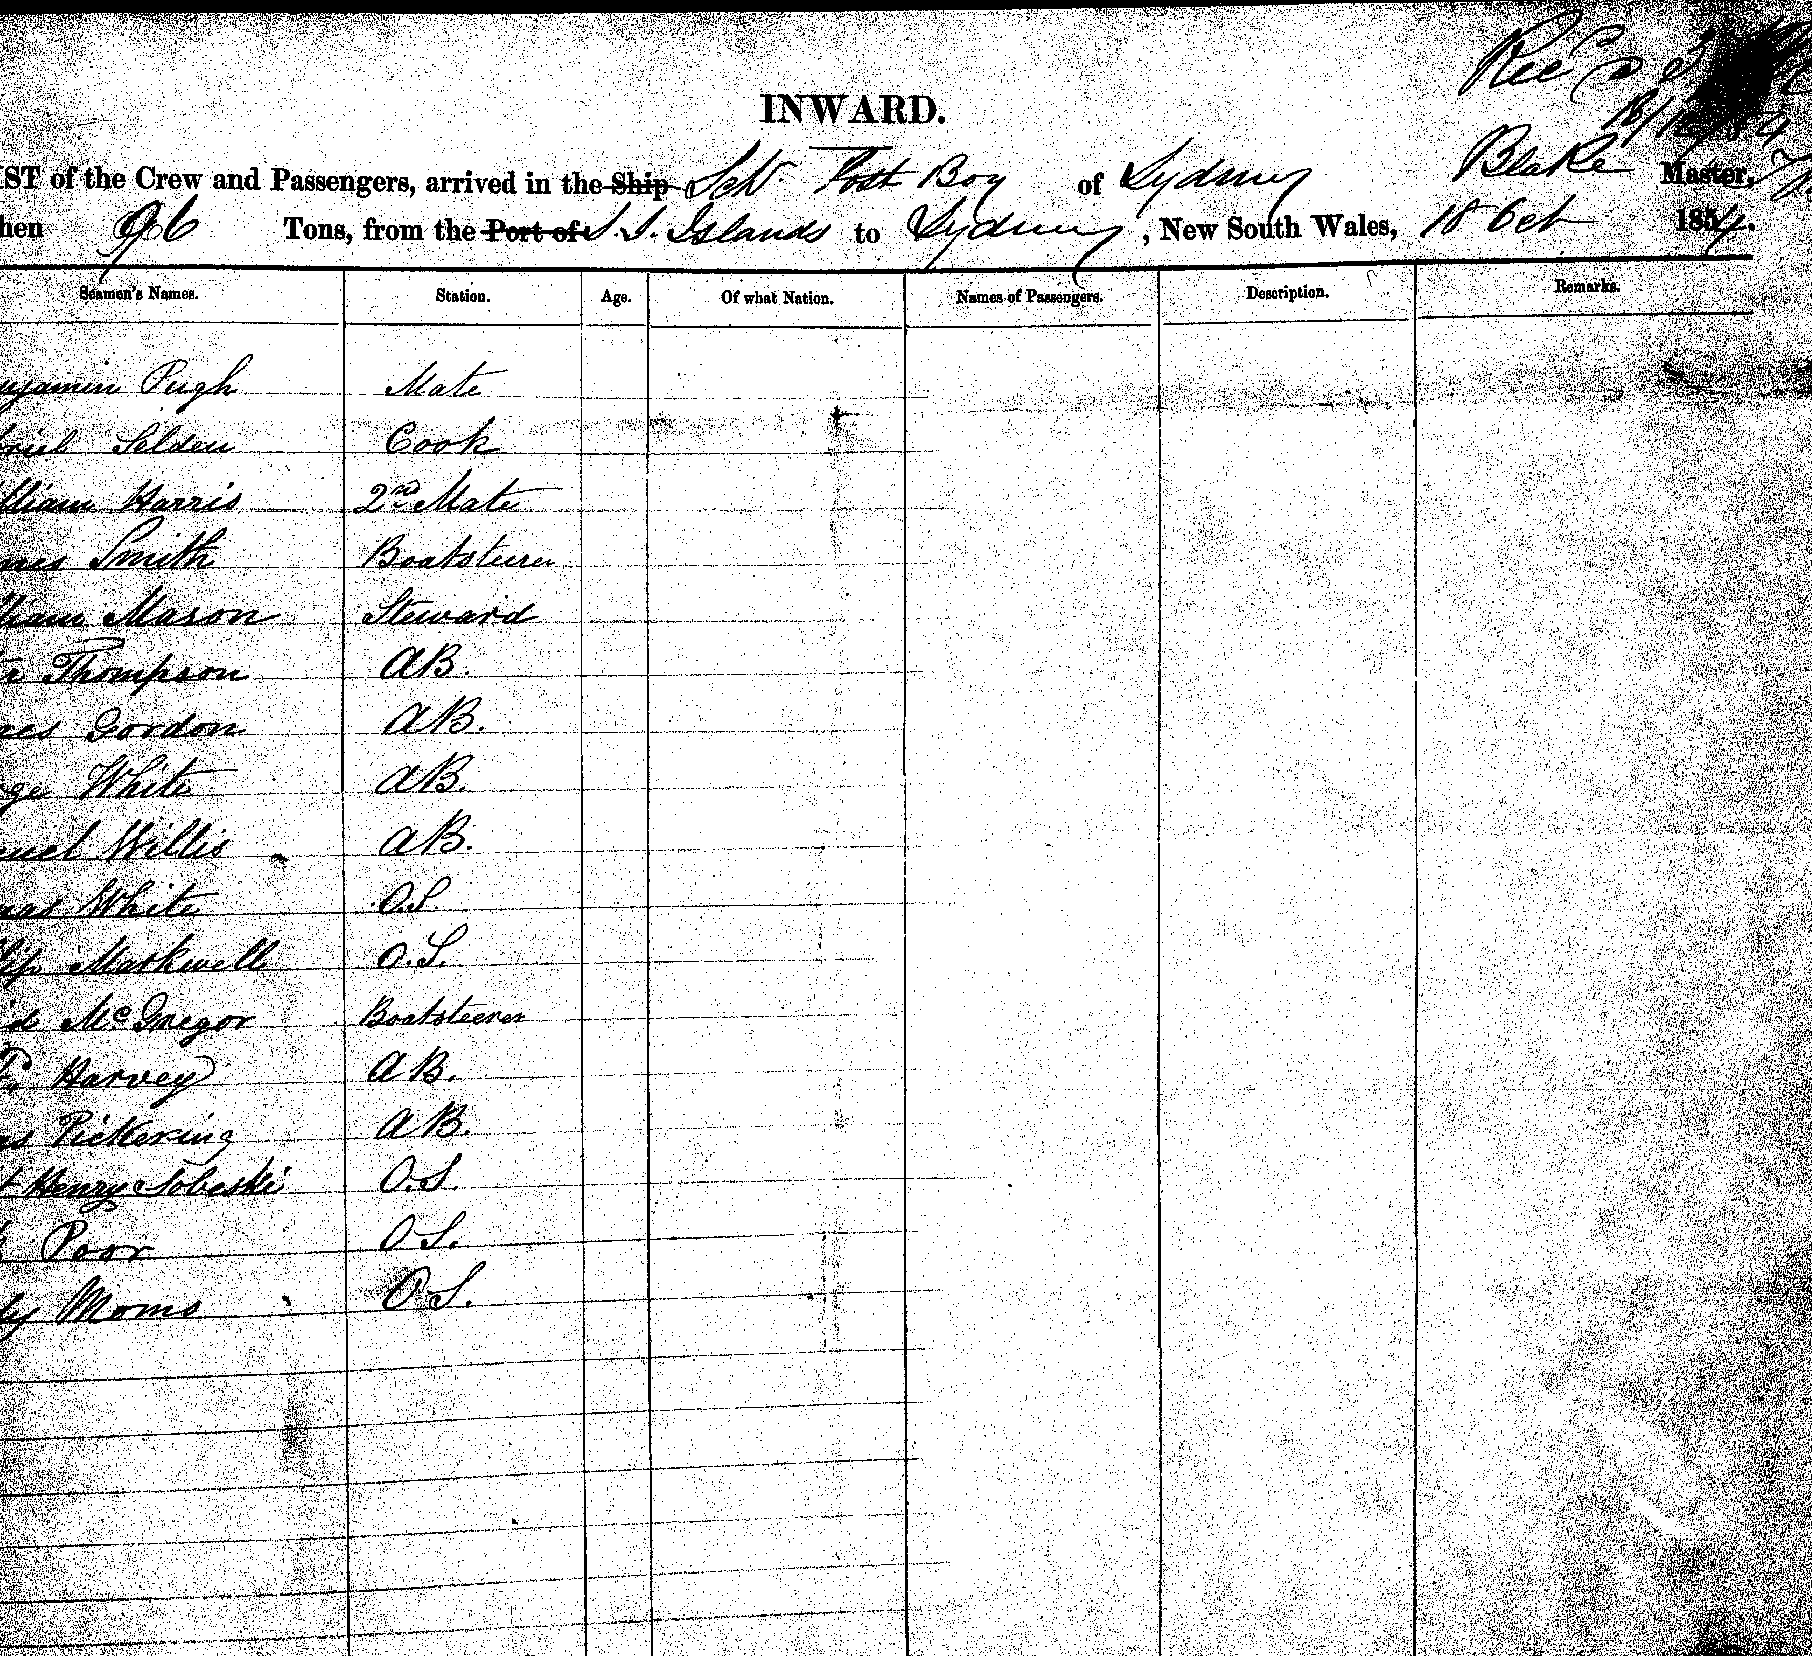 Rec
INWARD.
IST of the Crew and Passengers, arrived in the Ship Sch Post Boy of Sydney Blake Master,
hen 96 Tons, from the Port of S. S. Islands to Sydney, New South Wales, 18 Oct 1854.
Seamen's Names. Station. Age. Of what Nation. Names of Passengers. Description. Remarks.
njamin Pugh Mate
briel Selden Cook
lliam Harris 2nd Mate
mes Smith Boatsteerer
lliam Mason Steward
Thompson AB.
mes Gordon AB.
rge White AB.
muel Willis AB.
mas White O.S.
lip Markwell O.S.
id McGregor Boatsteerer
Harvey AB.
Pickering AB.
t Henry Sobeski O.S.
Poor O.S.
ly Morris O.S.